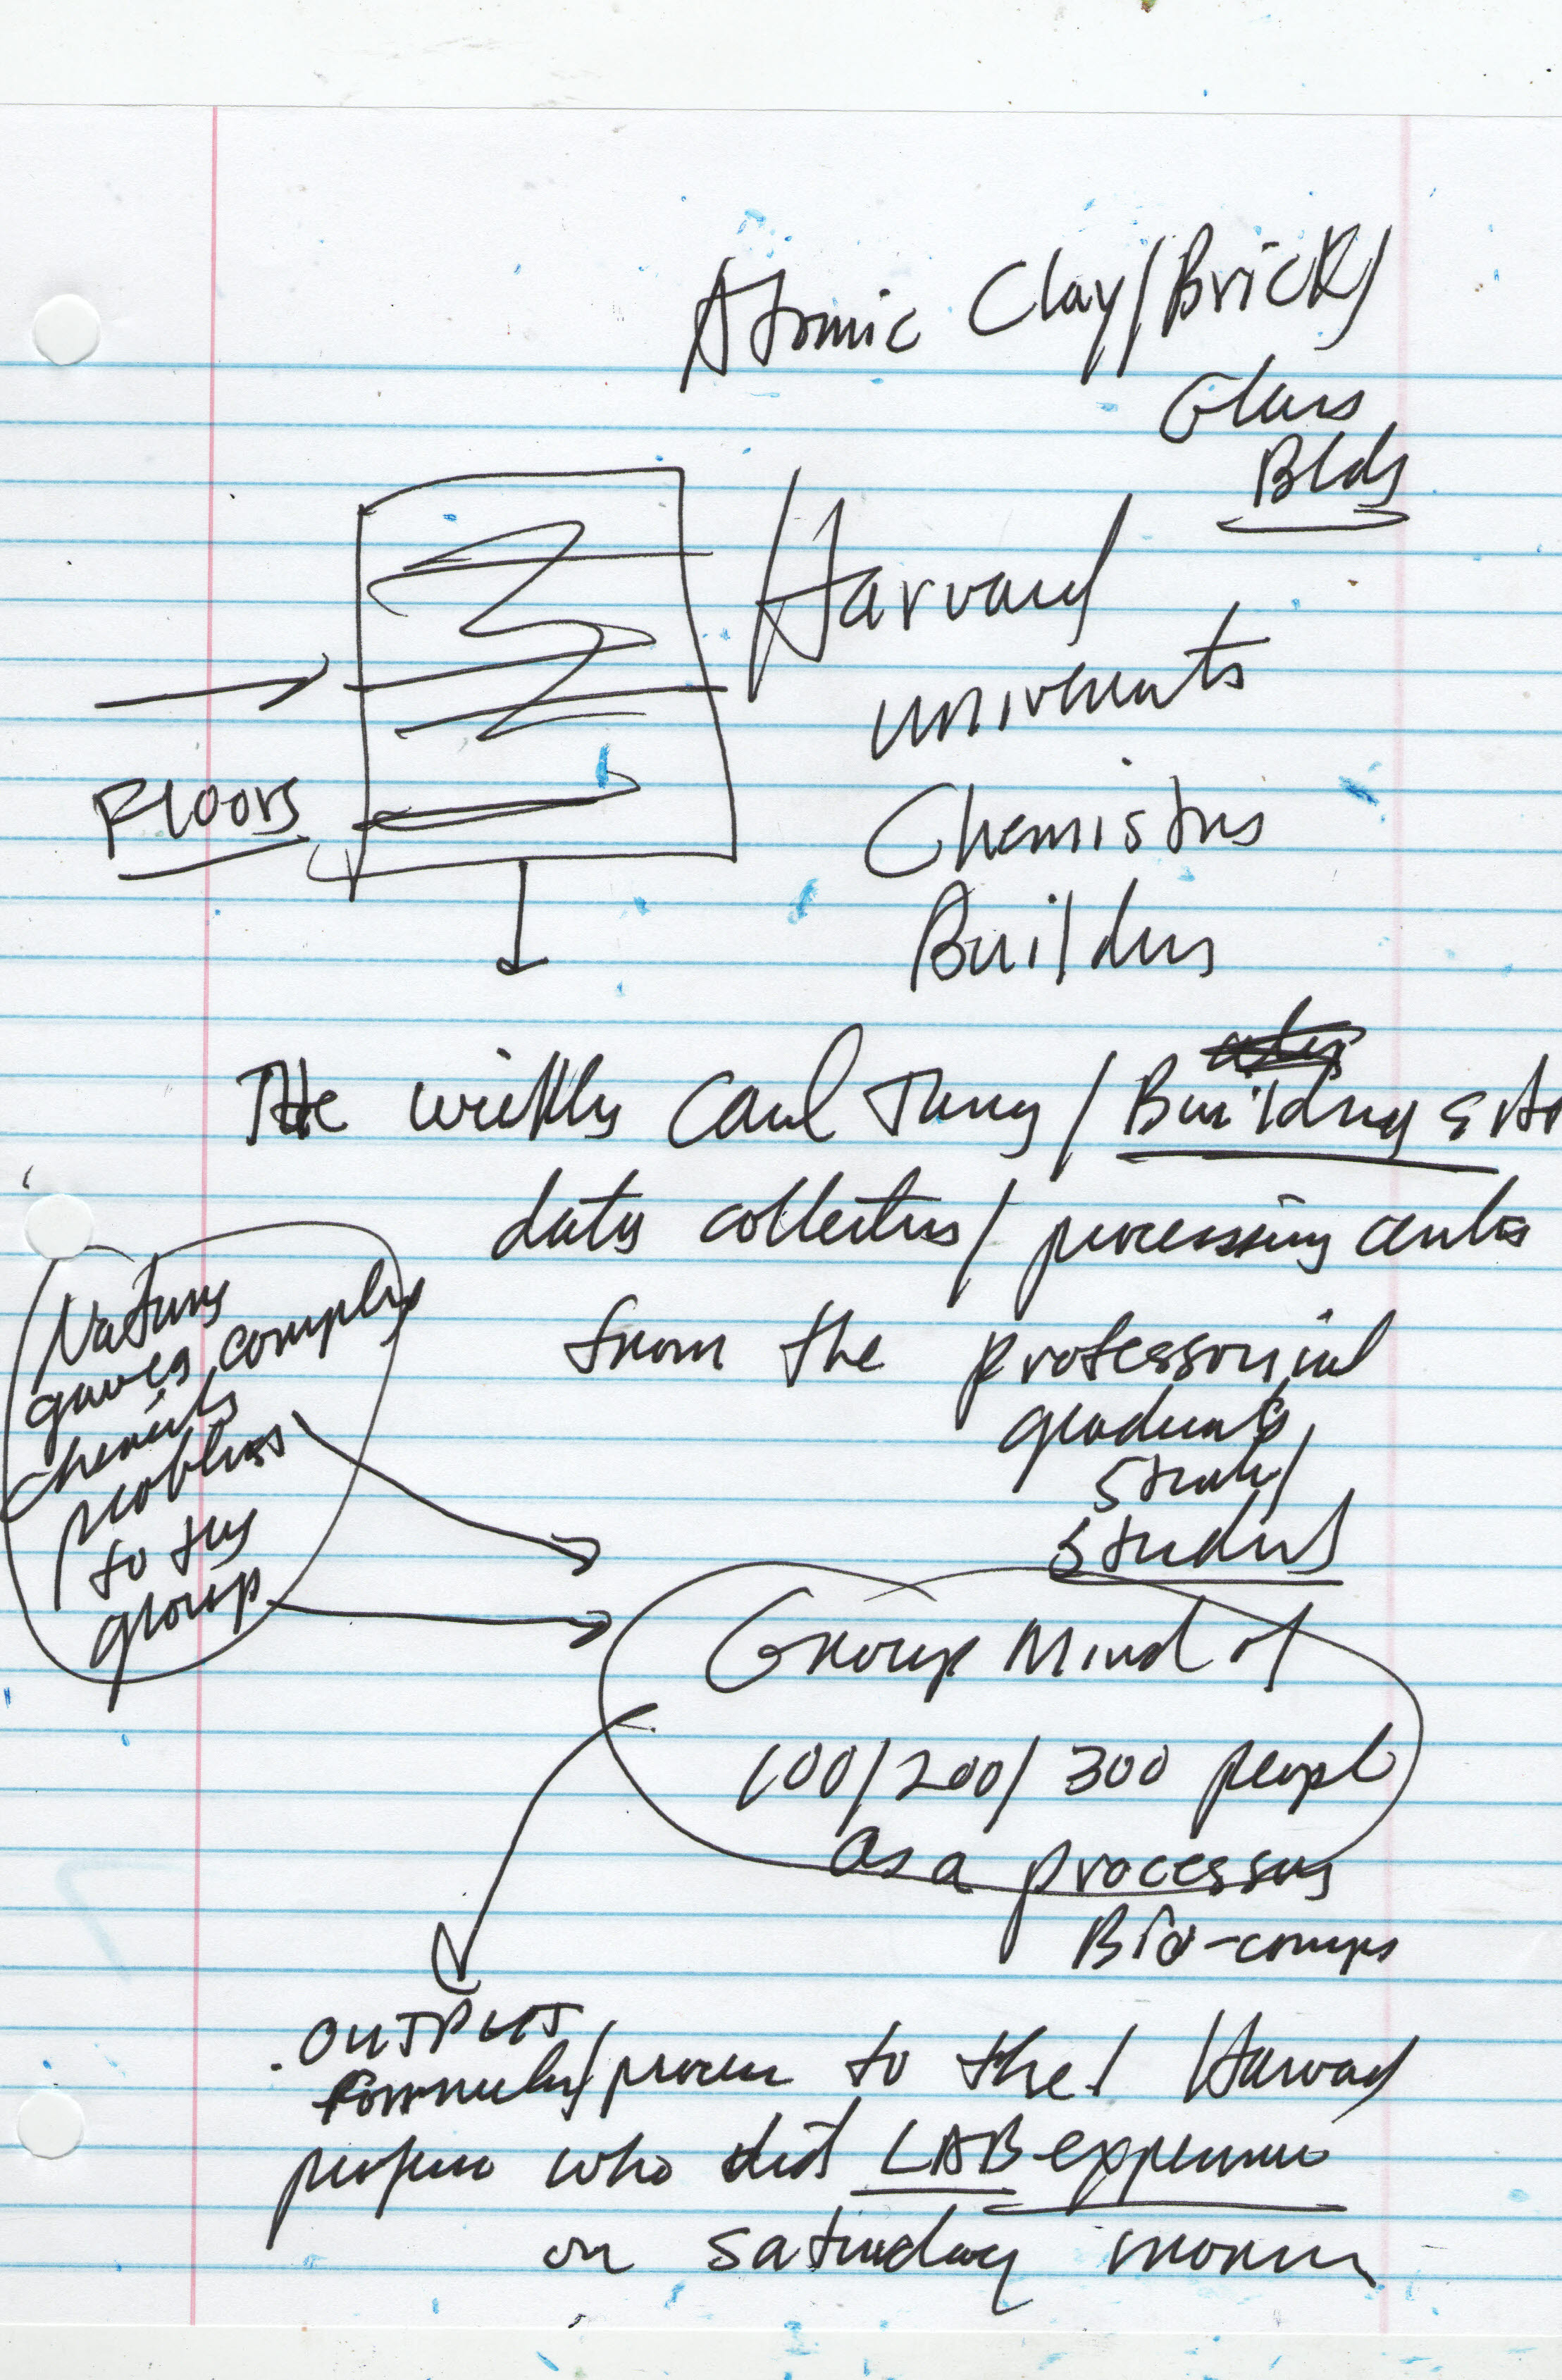 Atomic Clay/Brick/
Glass
Blds
Harvard
University
Chemistry
Building
Floors
The weekly Carl Jung / Building
data collection / processing center
from the professorial
graduate
students
Nature
gives complex
chemists
problems
to this
group
Group Mind of
100/200/300 people
as a processing
Bio-comps
OUTPUT
formula/process to the Harvard
professor who did LAB experiments
on Saturday morning